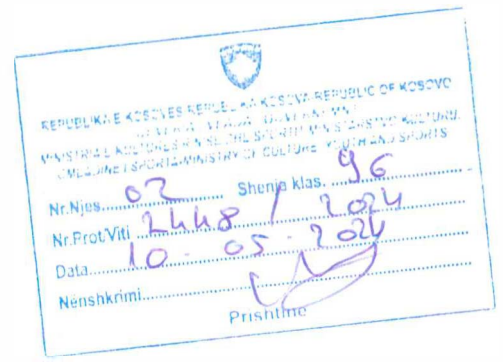 REPUBLIKA E KOSOVËS REPUBLIKA KOSOVA REPUBLIC OF KOSOVO
MINISTRIA E KULTURËS RINISË DHE SPORTIT MINISTARSTVO KULTURE,
OMLADINE I SPORTA MINISTRY OF CULTURE YOUTH AND SPORTS
Nr.Njes. 02 Shenja klas. 96
Nr.Prot/Viti 2448 / 2024
Data 10-05-2024
Nënshkrimi
Prishtinë